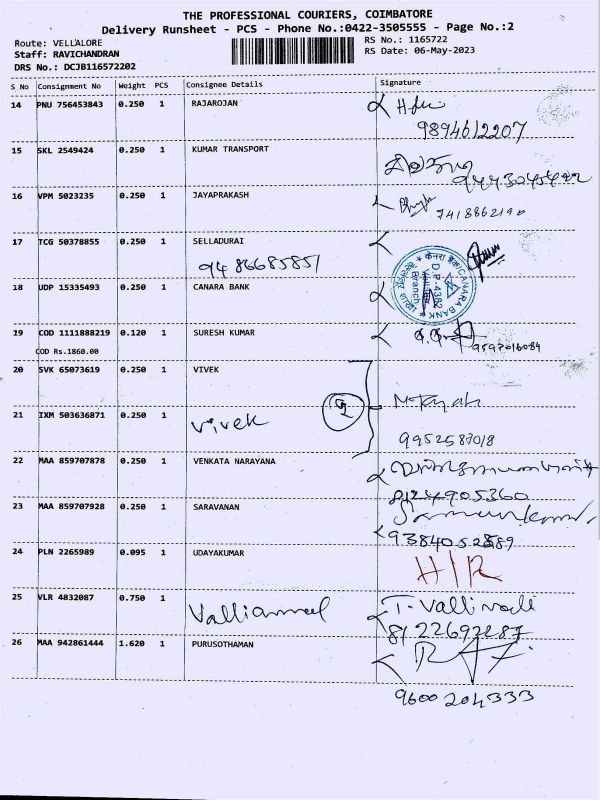 THE PROFESSIONAL COURIERS, COIMBATORE
Delivery Runsheet - PCS - Phone No.:0422-3505555 - Page No.:2
Route: VELLALORE
RS No.: 1165722
Staff: RAVICHANDRAN
RS Date: 06-May-2023
DRS No.: DCJB116572202
S No Consignment No Weight PCS Consignee Details Signature
14 PNU 756453843 0.250 1 RAJAROJAN
9894612207
15 SKL 2549424 0.250 1 KUMAR TRANSPORT
16 VPM 5023235 0.250 1 JAYAPRAKASH
7418862190
17 TCG 50378855 0.250 1 SELLADURAI
9486685851
18 UDP 15335493 0.250 1 CANARA BANK
केनरा बैंक/CANARA BANK
D.P-4382
Branch
19 COD 1111888219 0.120 1 SURESH KUMAR
9597016084
COD Rs.1860.00
20 SVK 65073619 0.250 1 VIVEK
21 IXM 503636871 0.250 1 vivek
9952587018
22 MAA 859707878 0.250 1 VENKATA NARAYANA
8124905360
23 MAA 859707928 0.250 1 SARAVANAN
9384052889
24 PLN 2265989 0.095 1 UDAYAKUMAR
25 VLR 4832087 0.750 1 Valliammal
8122692287
26 MAA 942861444 1.620 1 PURUSOTHAMAN
9600204333